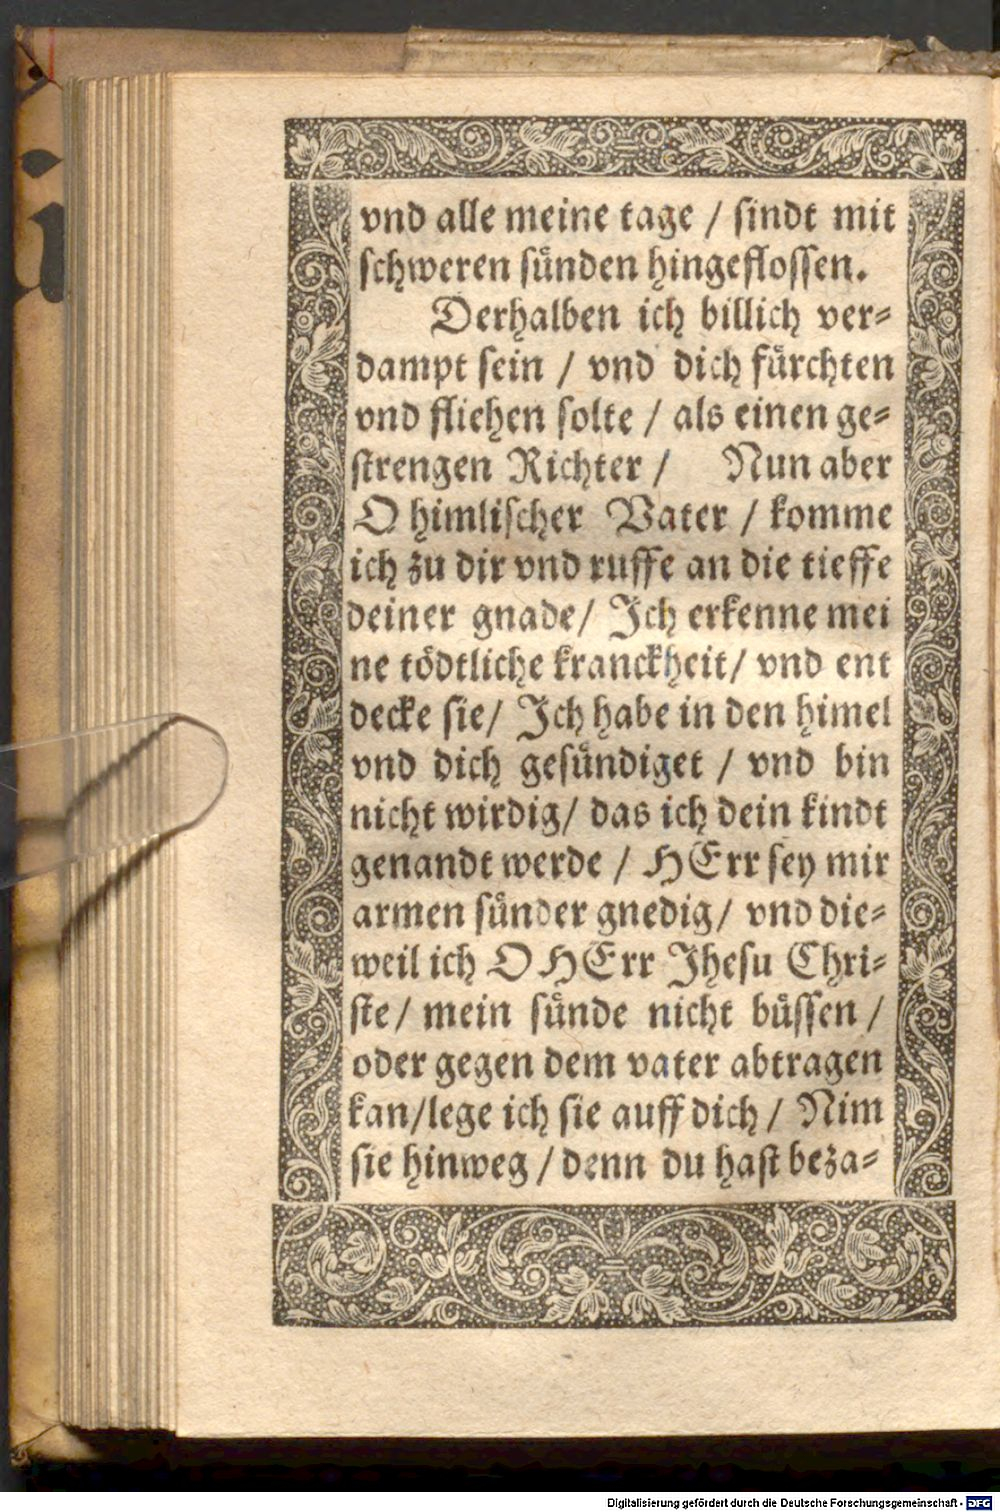 vnd alle meine tage / ſindt mit
ſchweren ſuͤnden hingefloſſen.
Derhalben ich billich ver⸗
dampt ſein / vnd dich fuͤrchten
vnd fliehen ſolte / als einen ge⸗
ſtrengen Richter / Nun aber
O himliſcher Vater / komme
ich zu dir vnd ruffe an die tieffe
deiner gnade/ Ich erkenne mei
ne toͤdtliche kranckheit/ vnd ent
decke ſie/ Ich habe in den himel
vnd dich geſuͤndiget / vnd bin
nicht wirdig/ das ich dein kindt
genandt werde / HErr ſey mir
armen ſuͤnder gnedig/ vnd die⸗
weil ich O HErr Jheſu Chri⸗
ſte/ mein ſuͤnde nicht buͤſſen /
oder gegen dem vater abtragen
kan/lege ich ſie auff dich / Nim
ſie hinweg / denn du haſt beza⸗
Digitalisierung gefördert durch die Deutsche Forschungsgemeinschaft - DFG